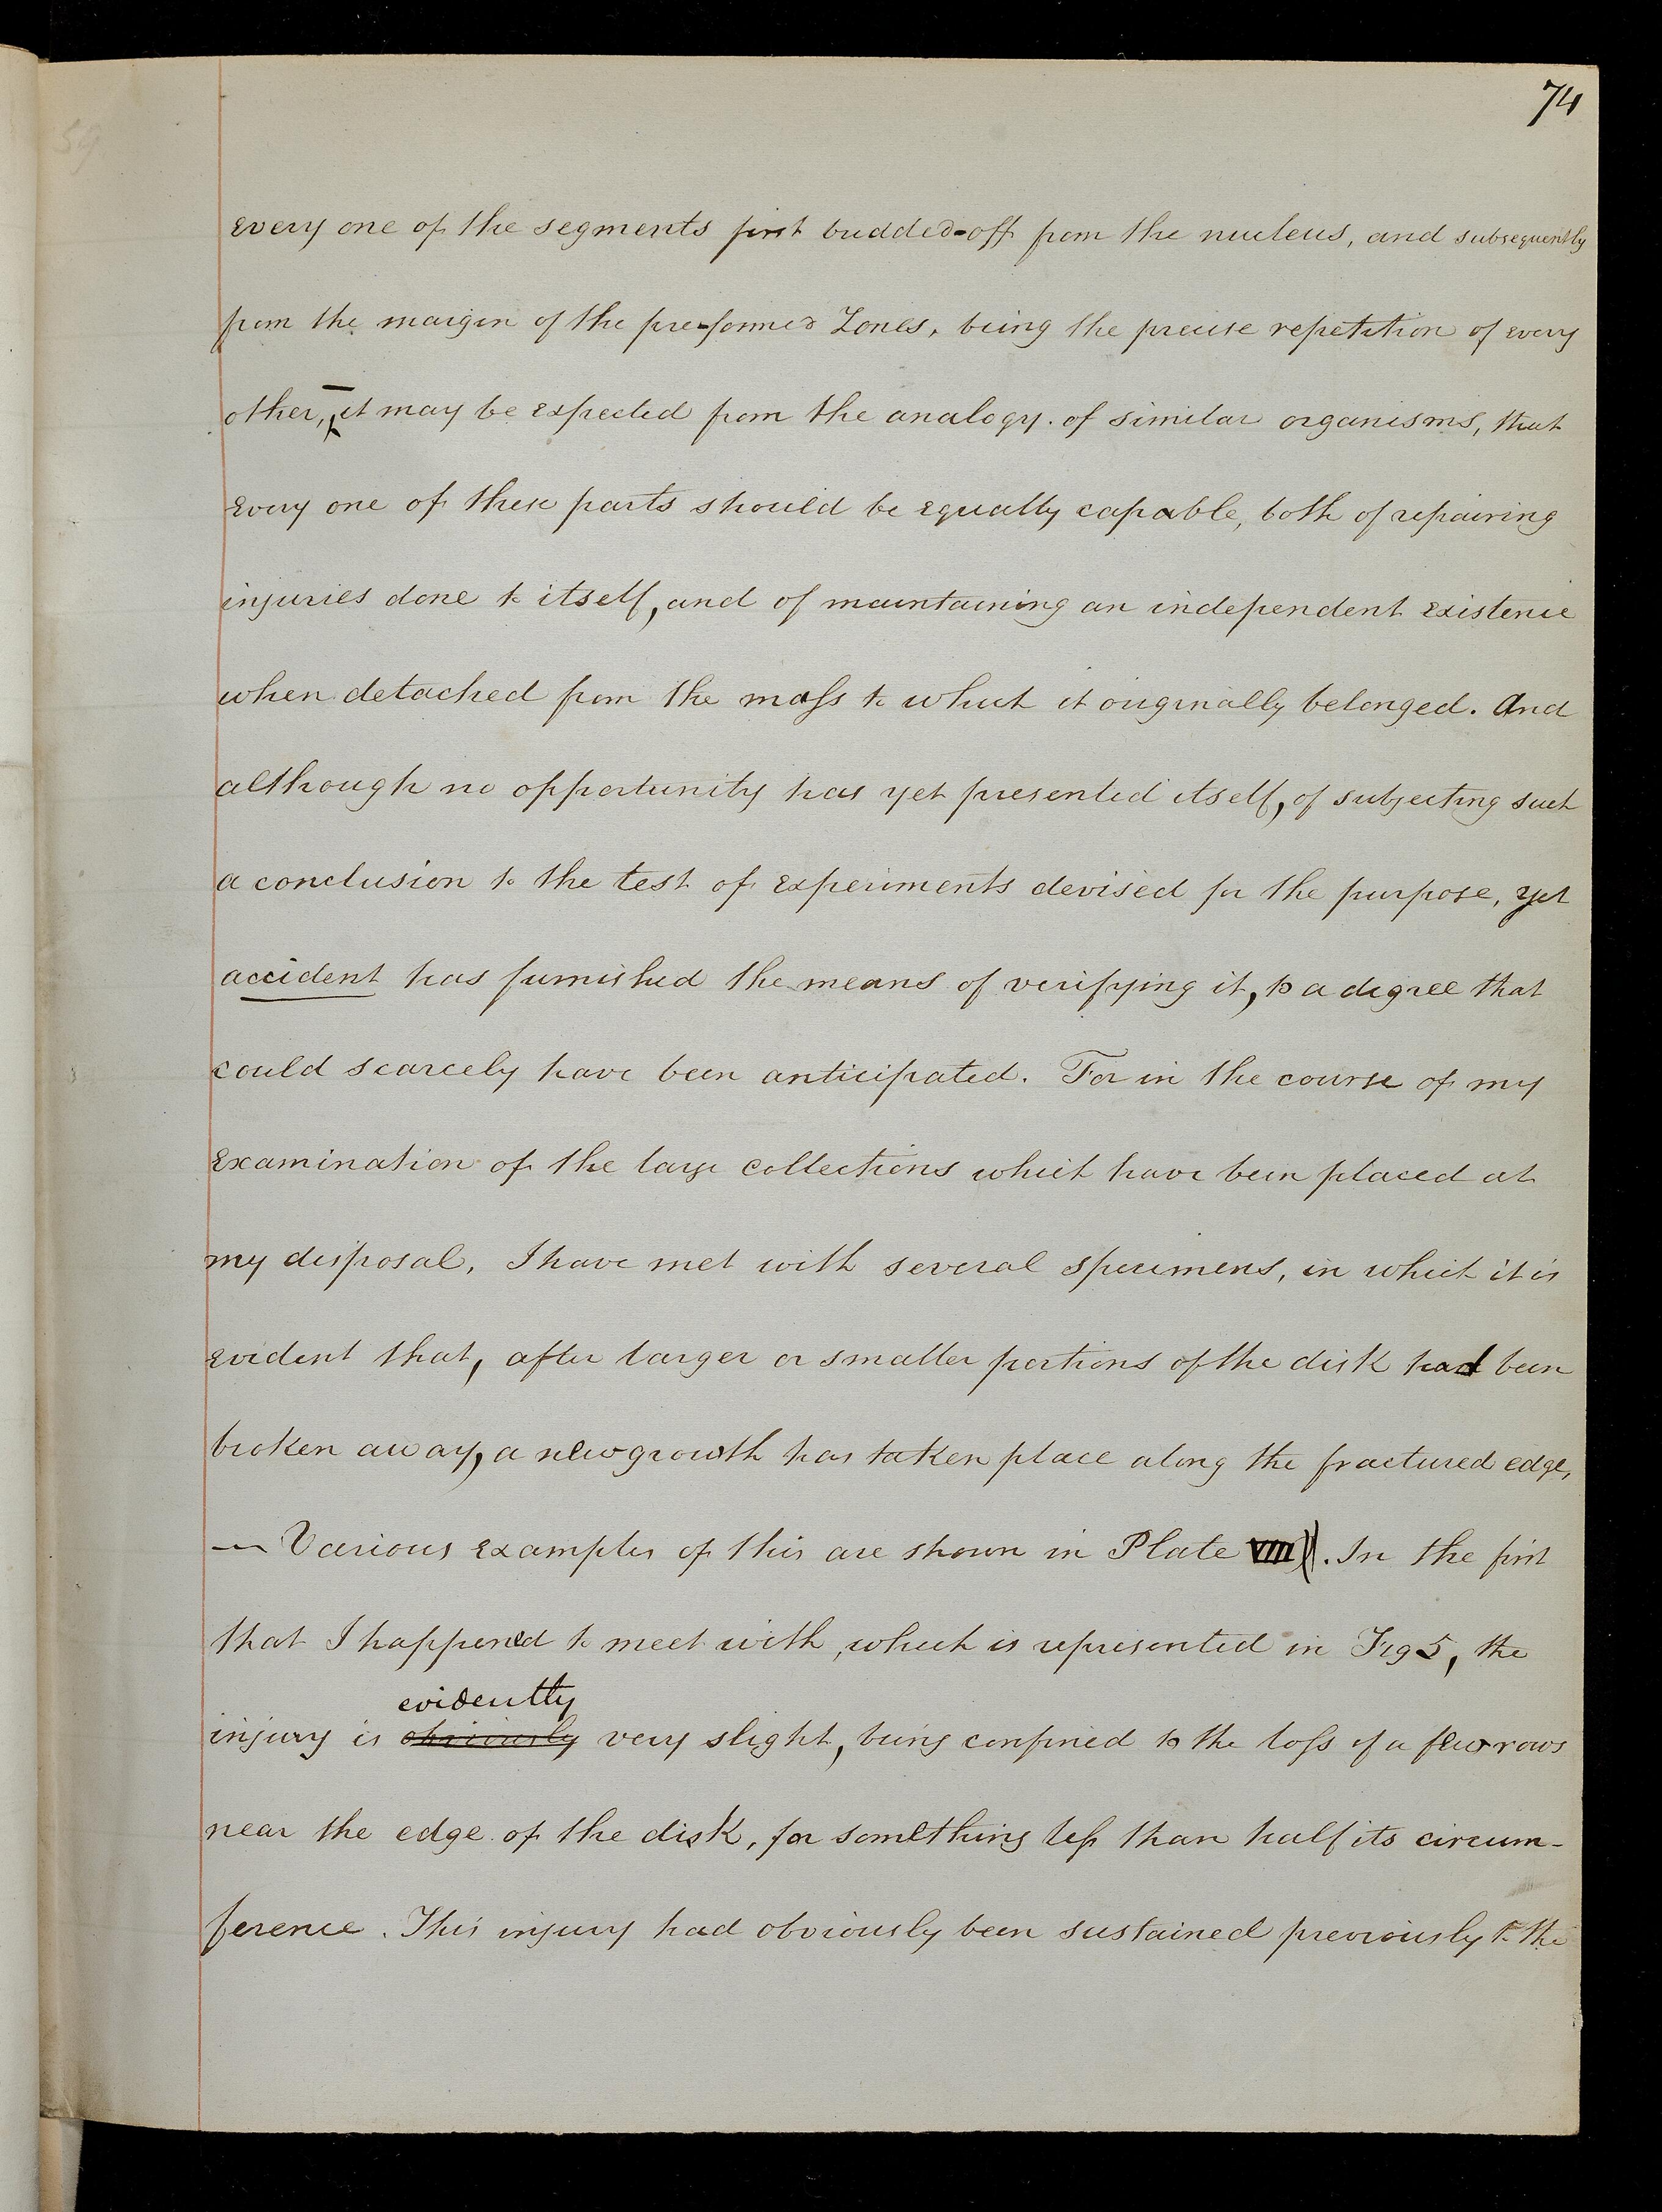 74
every one of the segments first budded-off from the nucleus, and subsequently
from the margin of the pre-formed Zones, being the precise repetition of every
other, — it may be expected from the analogy of similar organisms, that
every one of these parts should be equally capable, both of repairing
injuries done to itself, and of maintaining an independent existence
when detached from the mass to which it originally belonged. And
although no opportunity has yet presented itself, of subjecting such
a conclusion to the test of experiments devised for the purpose, yet
accident has furnished the means of verifying it, to a degree that
could scarcely have been anticipated. For in the course of my
examination of the large collections which have been placed at
my disposal, I have met with several specimens, in which it is
evident that, after larger or smaller portions of the disk had been
broken away, a new growth has taken place along the fractured edge,
— Various examples of this are shown in Plate VIII. In the first
that I happened to meet with, which is represented in Fig 5, the
evidently
injury is obviously very slight, being confined to the loss of a few rows
near the edge of the disk, for something less than half its circum-
ference. This injury had obviously been sustained previously to the